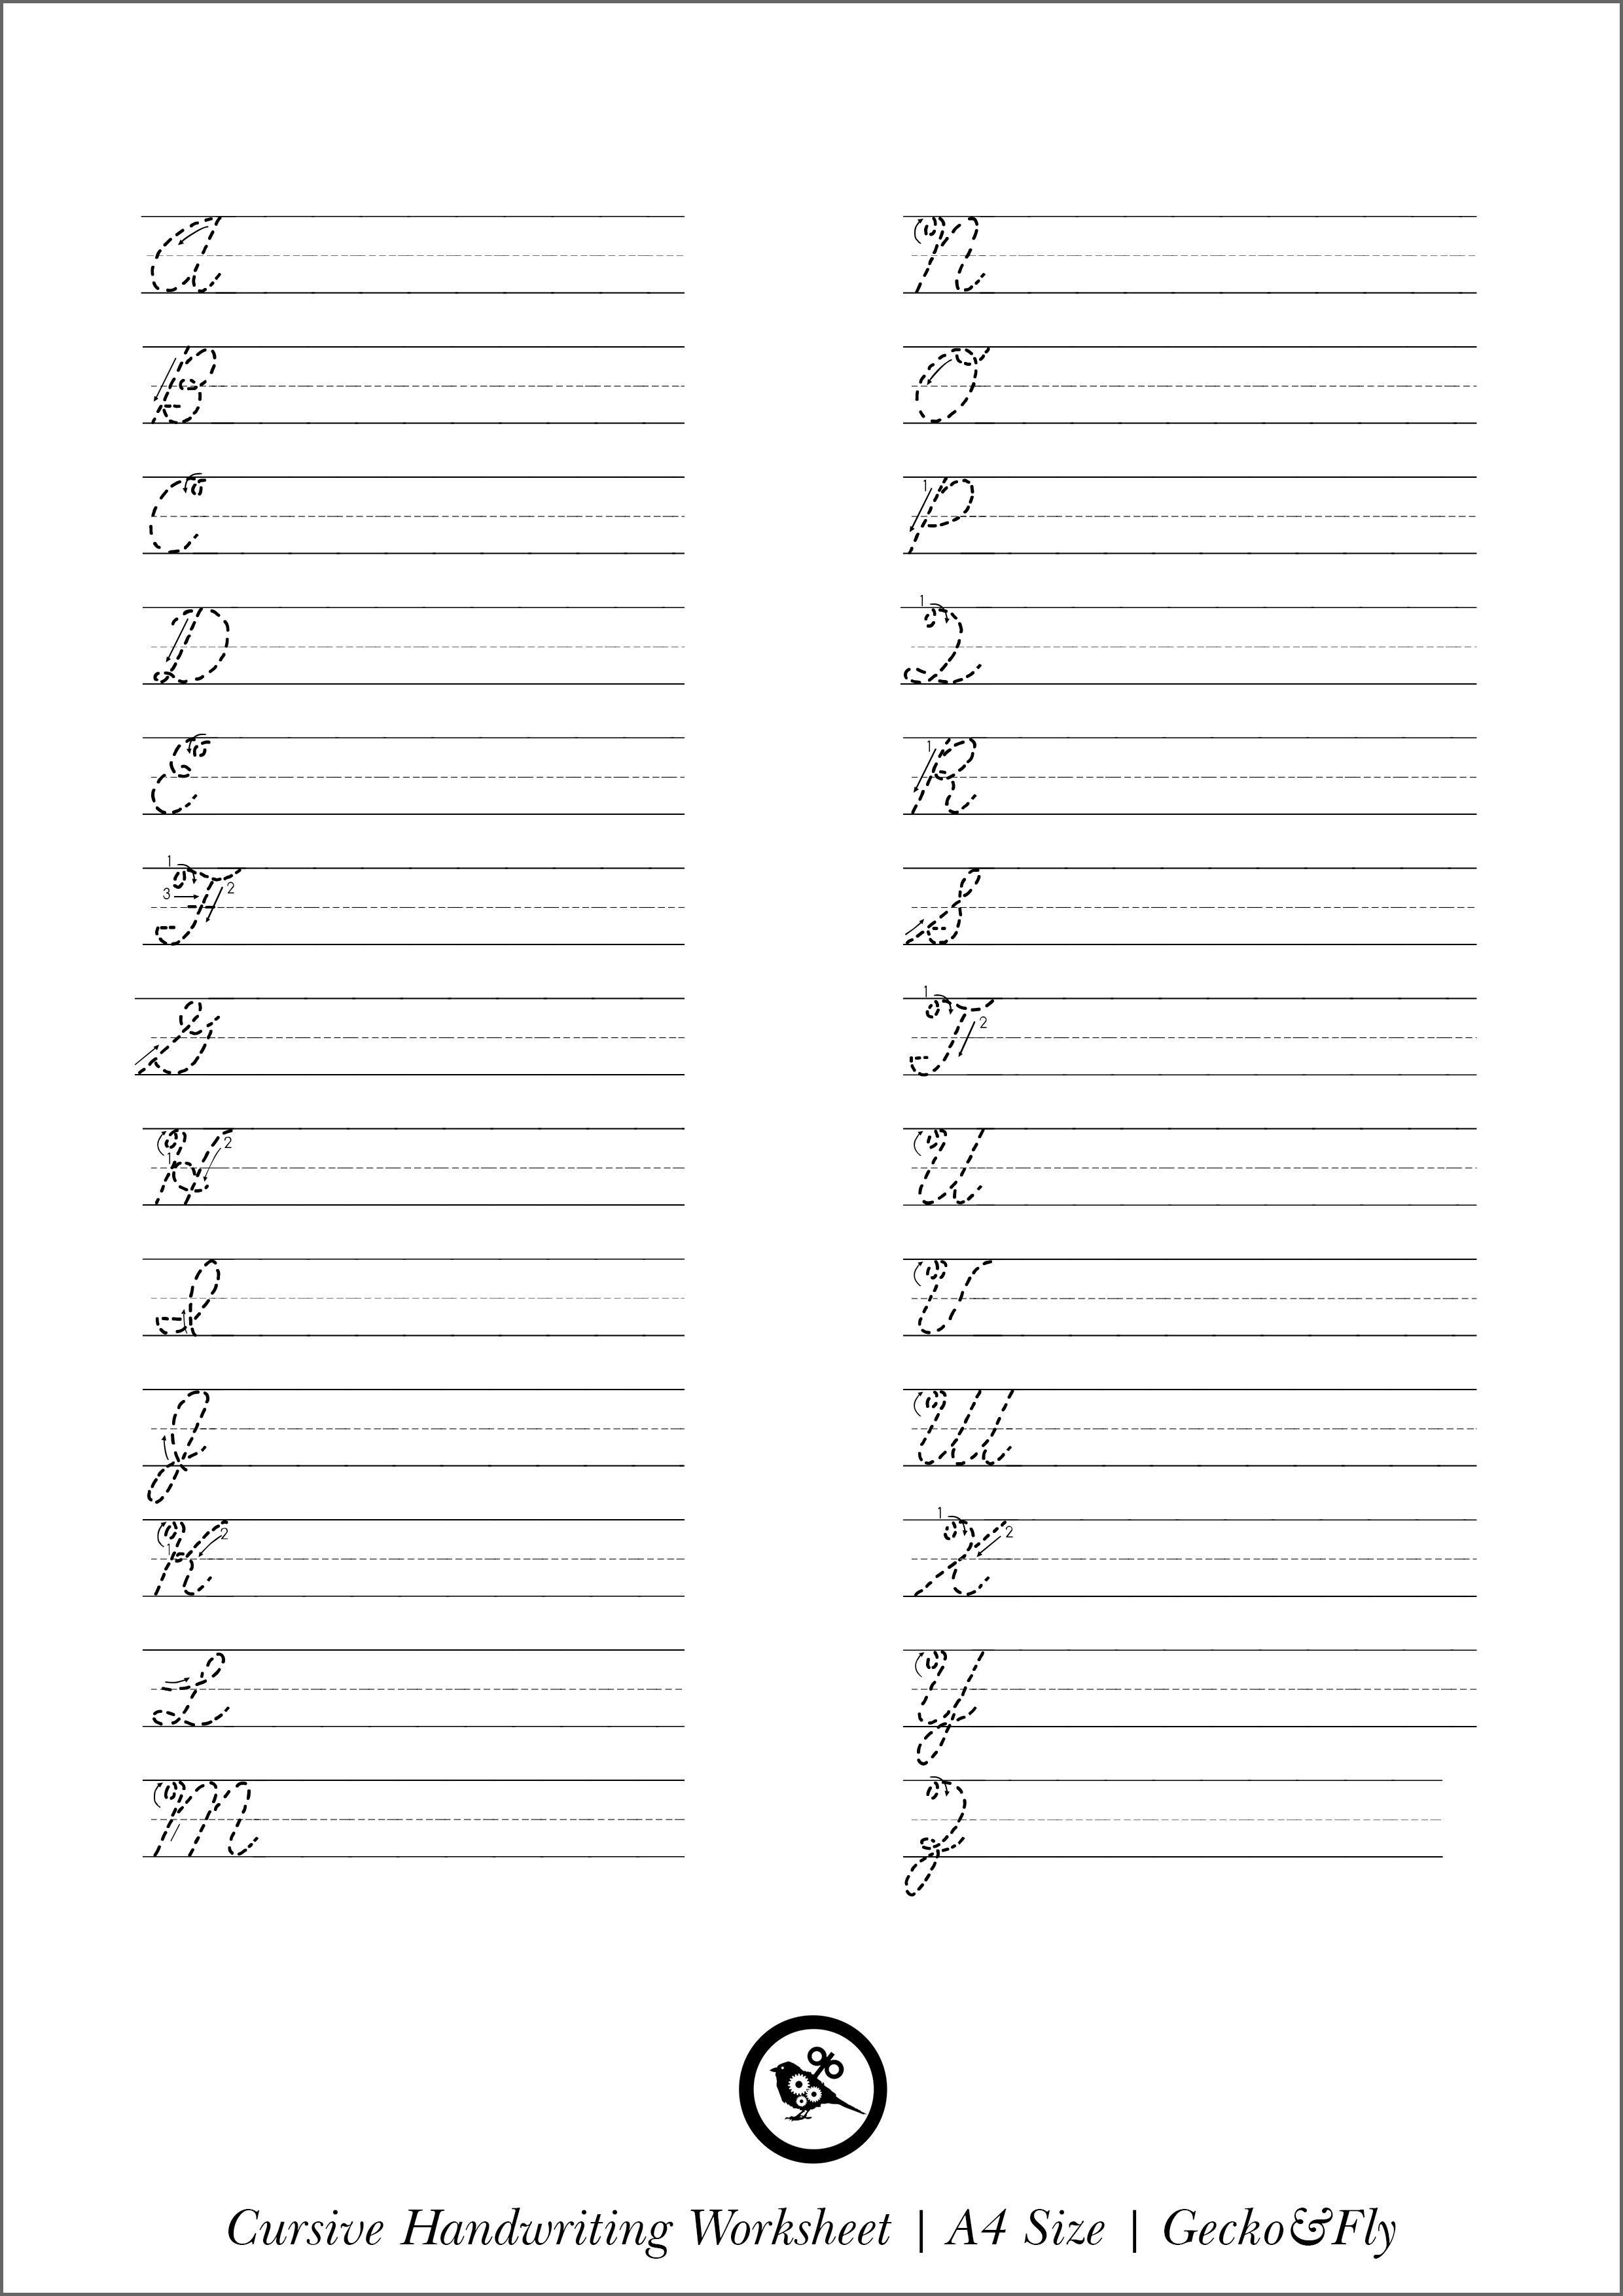 A
B
C
D
E
1 2 3 F
G
1 2 H
I
J
1 2 K
L
M
N
O
1 P
1 Q
1 R
S
1 2 T
U
V
W
1 2 X
Y
Z
Cursive Handwriting Worksheet | A4 Size | Gecko&Fly